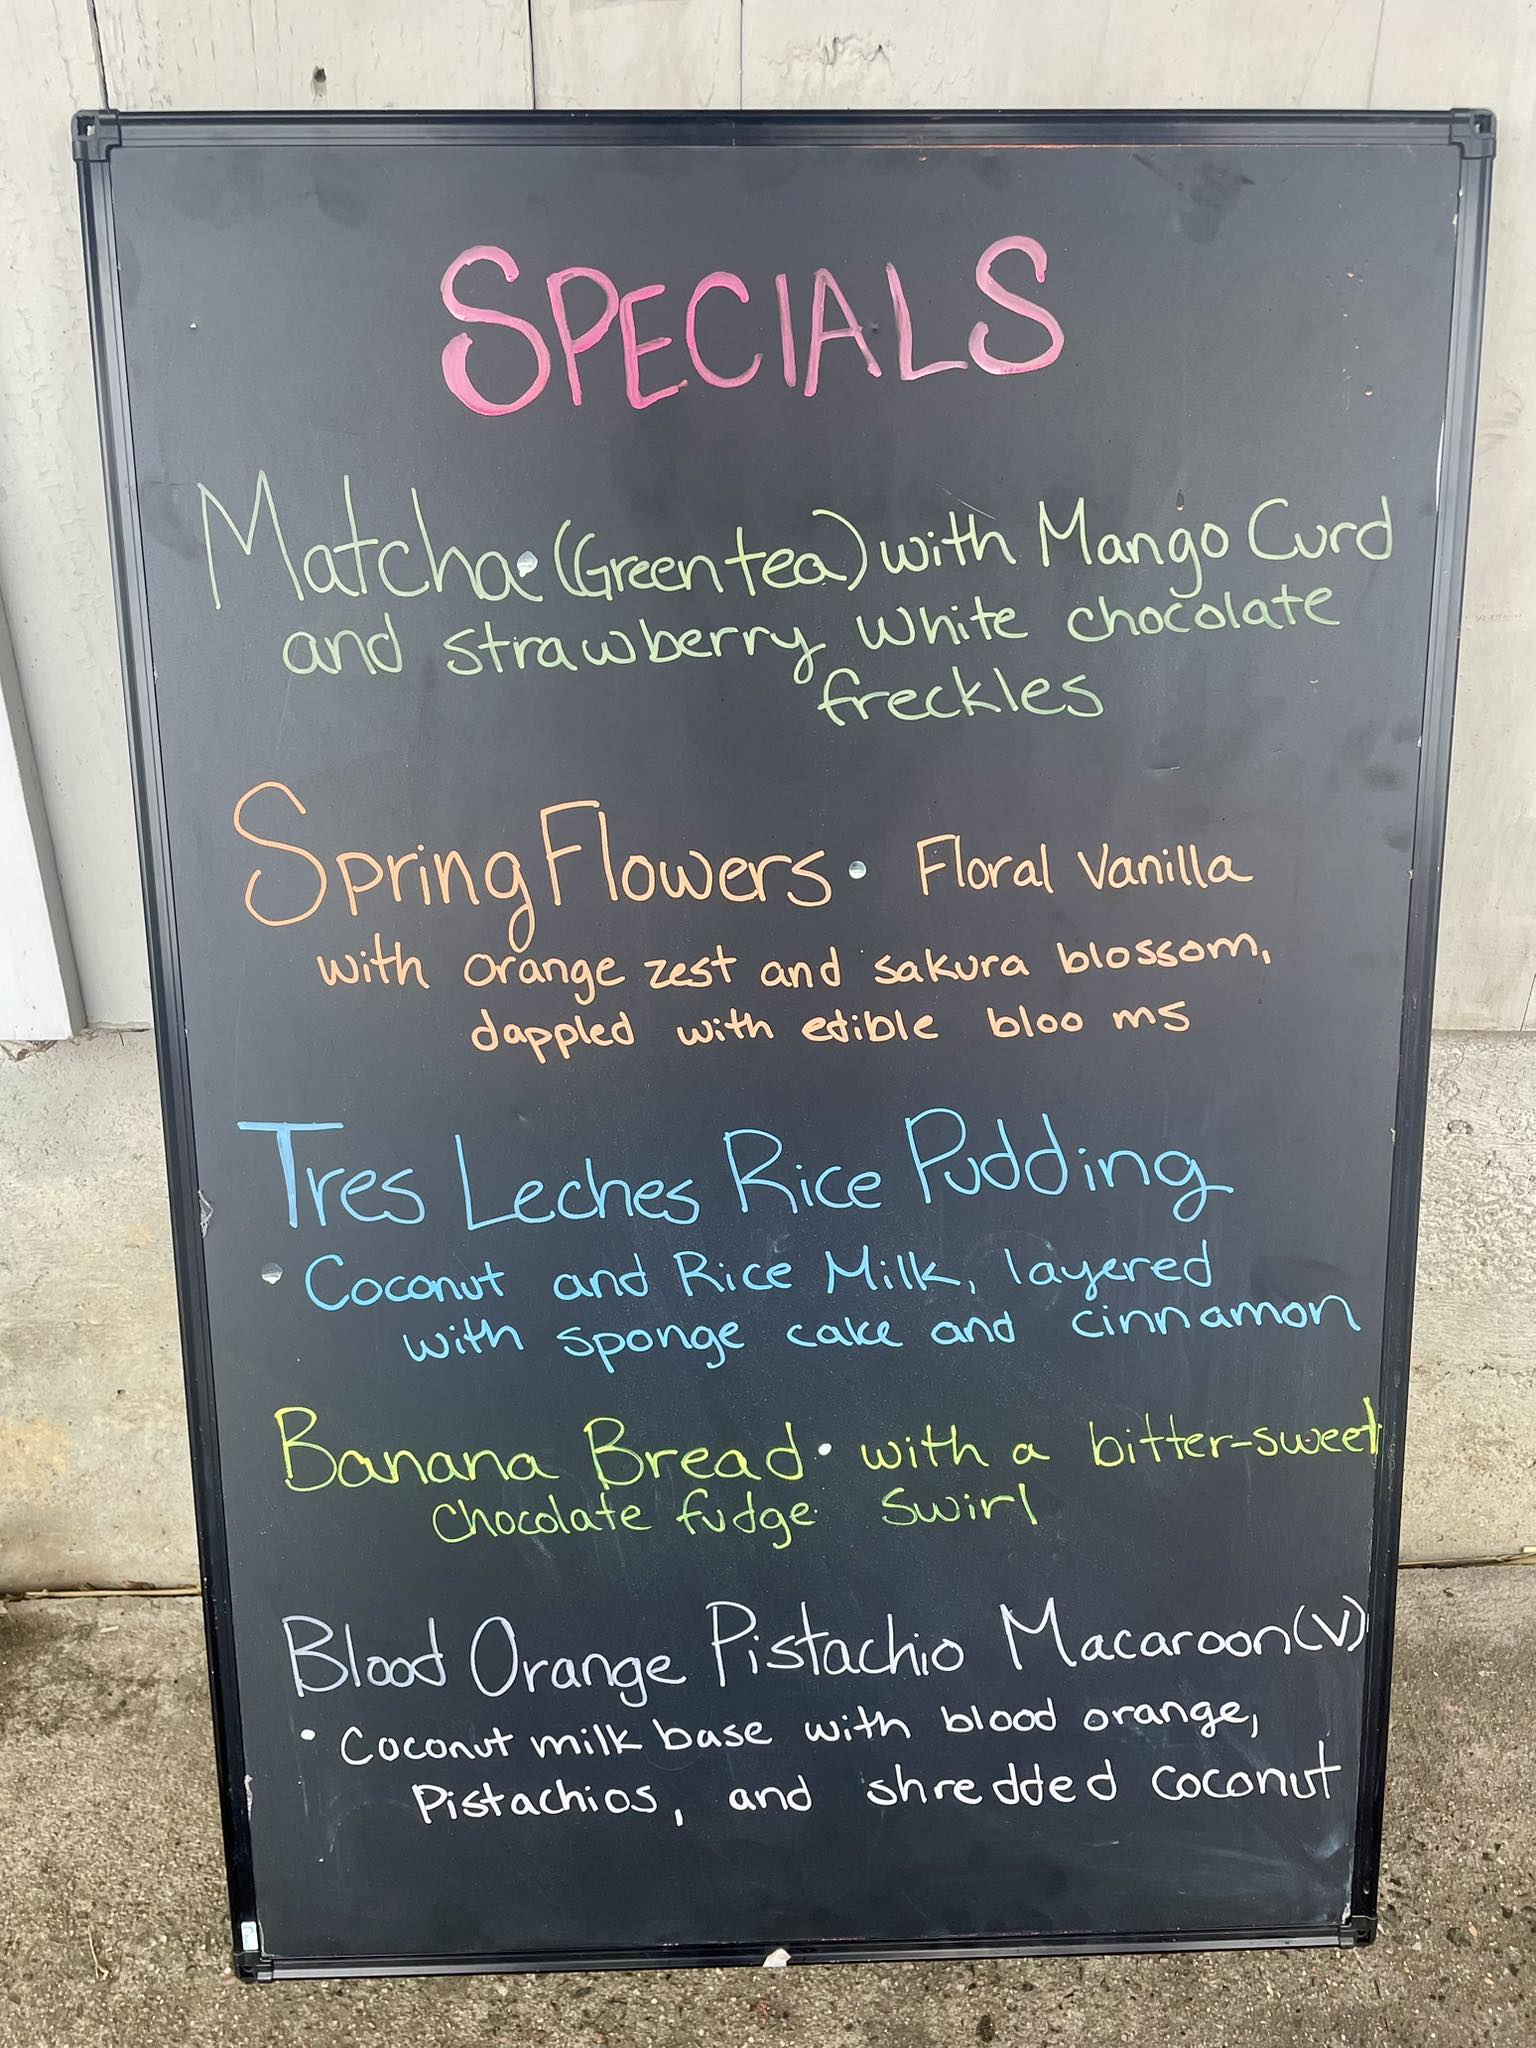 SPECIALS
Matcha • (Green tea) with Mango Curd
and strawberry white chocolate
freckles
Spring Flowers • Floral Vanilla
with orange zest and sakura blossom,
dappled with edible blooms
Tres Leches Rice Pudding
• Coconut and Rice Milk, layered
with sponge cake and cinnamon
Banana Bread • with a bitter-sweet
chocolate fudge swirl
Blood Orange Pistachio Macaroon (V)
• Coconut milk base with blood orange,
Pistachios, and shredded coconut